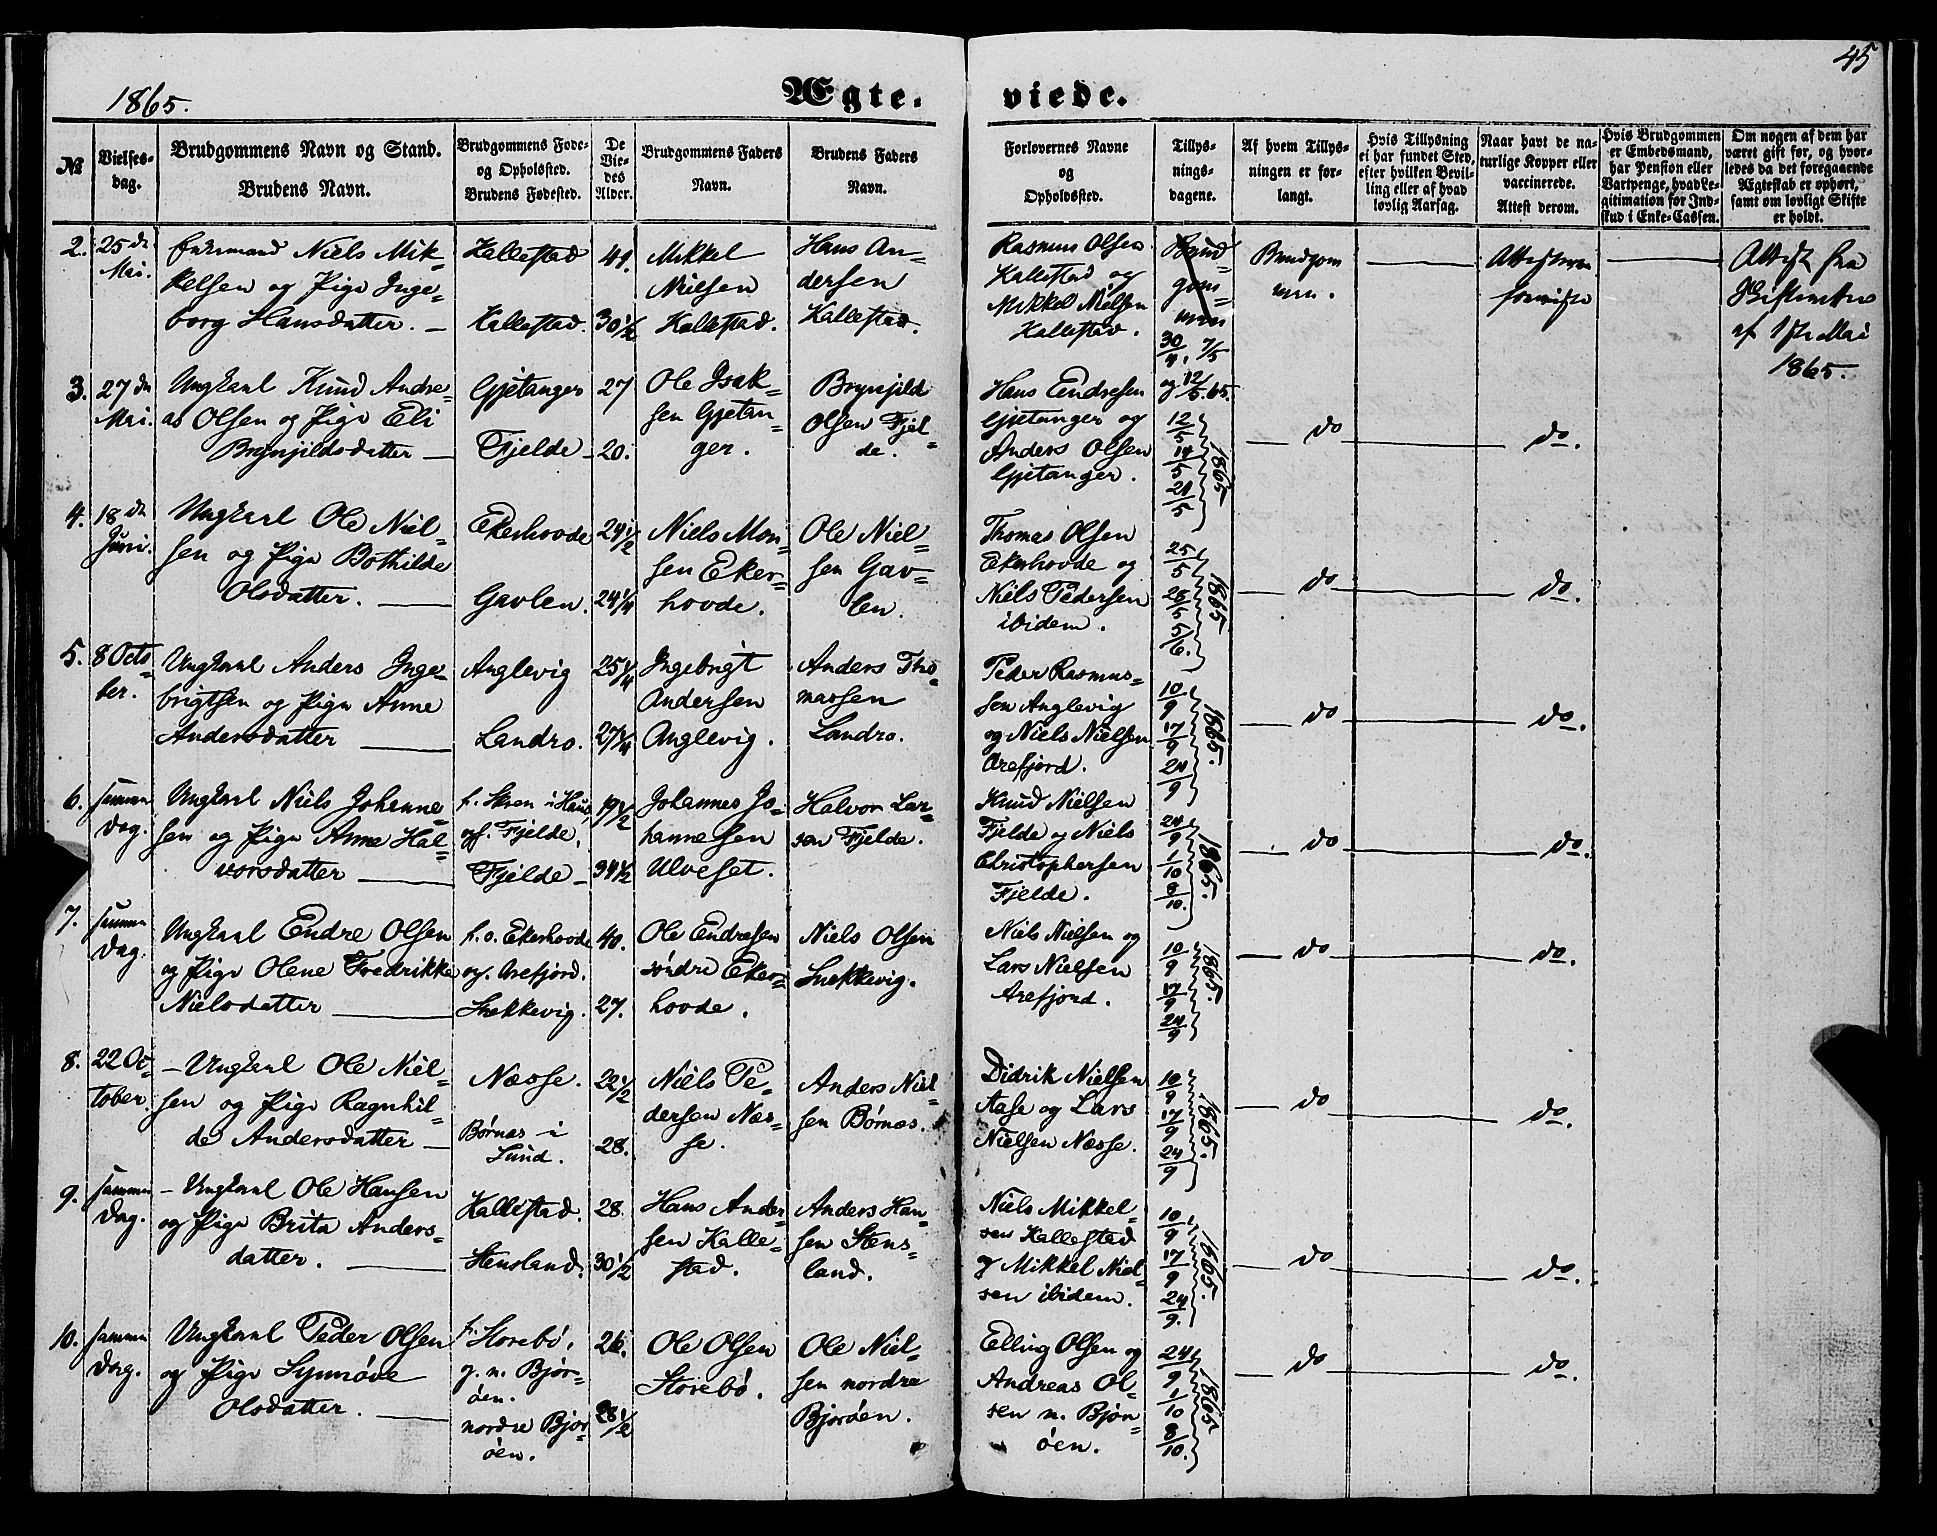 45
1865.
Ægte- viede.
№
Vielses-
dag.
Brudgommens Navn og Stand.
Brudens Navn.
Brudgommens Føde-
og Opholdsted.
Brudens Fødested.
De
Vie-
des
Alder.
Brudgommens Faders
Navn.
Brudens Faders
Navn.
Forlovernes Navne
og
Opholdssted.
Tillys-
nings-
dagene.
Af hvem Tillys-
ningen er for-
langt.
Hvis Tillysning
ei har fundet Sted,
efter hvilken Bevil-
ling eller af hvad
lovlig Aarsag.
Naar havt de na-
turlige Kopper eller
vaccinerede.
Attest derom.
Hvis Brudgommen
er Embedsmand,
har Pension eller
Vartpenge, hvad Le-
gitimation for Ind-
skud i Enke-Cassen.
Om nogen af dem har
været gift før, og hvor-
ledes da det foregaaende
Ægteskab er ophørt,
samt om lovligt Skifte
er holdt.
2.
25 de
Mai.
Enkemand Niels Mik-
kelsen og Pige Inge-
borg Hansdatter.
Kallestad
Kallestad.
41.
30 1/2
Mikkel
Nielsen
Kallestad.
Hans An-
dersen
Kallestad.
Rasmus Olsen
Kallestad og
Mikkel Nielsen
Kallestad.
Brud-
gom-
men
30/4, 7/5
og 12/5.65.
Brudgom
men.
Attesterne
foreviste
Attest fra
Skifteretten
af 1ste Mai
1865.
3.
27 de
Mai.
Ungkarl Knud Andre-
as Olsen og Pige Eli
Brynjildsdatter
Gjetanger
Fjelde
27
20.
Ole Isak-
sen Gjetan-
ger.
Brynjild
Olsen Fjel-
de.
Hans Endresen
Gjetanger og
Anders Olsen
Gjetanger.
12/5
14/5
21/5
1865
do
do.
4.
18 de
Juni.
Ungkarl Ole Niel-
sen og Pige Bothilde
Olsdatter.
Ekerhovde
Gavlen.
24 1/2
24 1/4
Niels Mon-
sen Eker-
hovde.
Ole Niel-
sen Gav-
len.
Thomas Olsen
Ekerhovde og
Niels Pedersen
ibidem.
25/5
28/5
5/6.
1865
do
do.
5.
8 Octo-
ber.
Ungkarl Anders Inge-
brigtsen og Pige Anne
Andersdatter
Anglevig
Landro.
25 1/4
27 1/4
Ingebrigt
Andersen
Anglevig.
Anders Tho-
massen
Landro.
Peder Rasmus-
sen Anglevig
og Niels Nielsen
Arefjord.
10/9
17/9
24/9
1865.
do
do.
6.
samme
Dag.
Ungkarl Niels Johanne-
sen og Pige Anne Hal-
vorsdatter
f. Skren i Haus
opf. Fjelde,
Fjelde
19 1/2
34 1/2
Johannes Jo-
hannesen
Ulveset.
Halvor Lar-
sen Fjelde.
Knud Nielsen
Fjelde og Niels
Christophersen
Fjelde.
24/9
1/10
8/10.
1865.
do
do.
7.
samme
Dag.
Ungkarl Endre Olsen
og Pige Olene Fredrikke
Nielsdatter
f. o. Ekerhovde
og. Arefjord.
Snekkevig.
40.
27.
Ole Endresen
søndre Eker-
hovde.
Niels Olsen
Snekkevig.
Niels Nielsen og
Lars Nielsen
Arefjord.
10/9
17/9
24/9
1865.
do
do.
8.
22 Oc-
tober.
Ungkarl Ole Niel-
sen og Pige Ragnhil-
de Andersdatter
Næsse.
Børnæs i
Sund.
22 1/2
28.
Niels Pe-
dersen Næs-
se.
Anders Niel-
sen Børnæs.
Didrik Nielsen
Aase og Lars
Nielsen Næsse.
10/9
17/9
24/9
1865.
do
do.
9.
samme
Dag.
Ungkarl Ole Hansen
og Pige Brita Anders-
datter.
Kallestad.
Stensland.
28
30 1/2
Hans Ander-
sen Kalle-
stad.
Anders Han-
sen Stens-
land.
Niels Mikkel-
sen Kallestad
og Mikkel Niel-
sen ibidem.
10/9
17/9
24/9.
1865.
do
do.
10.
samme
Dag.
Ungkarl Peder Olsen
og Pige Synnøve
Olsdatter.
f. Storebø,
g. n. Bjor-
øen.
nordre Bjor-
øen.
26.
28 1/2
Ole Olsen
Storebø.
Ole Niel-
sen nordre
Bjorøen.
Elling Olsen og
Andreas Ol-
sen n. Bjor-
øen.
24/9
1/10
8/10.
1865
do
do.